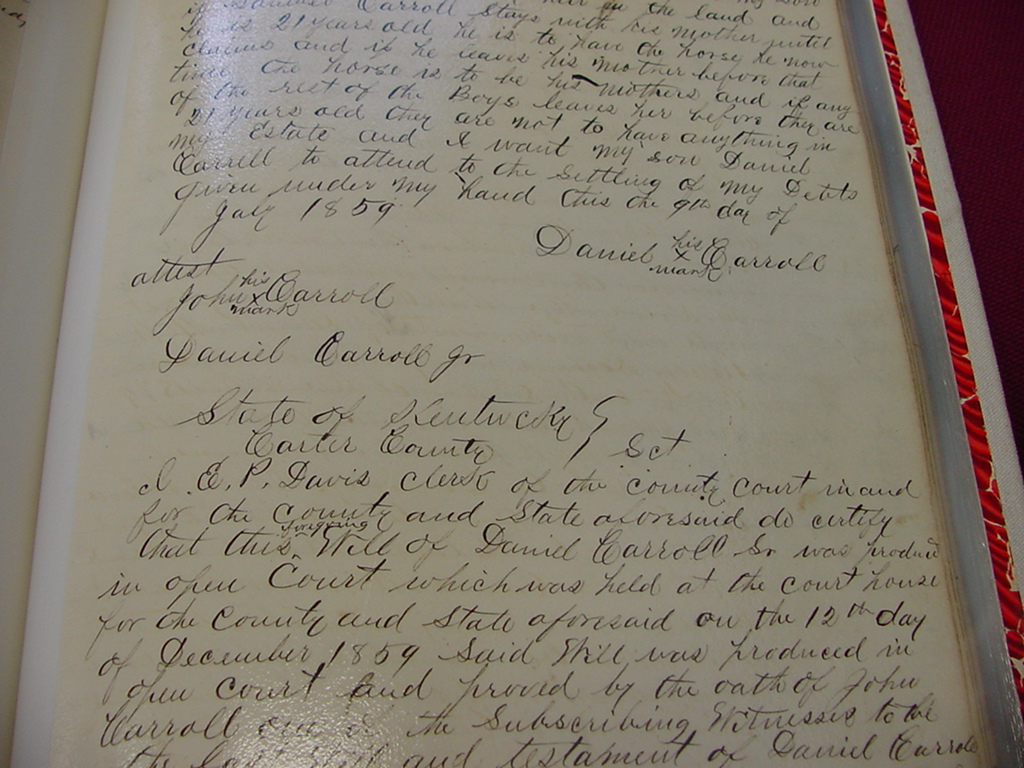 in the land and
Carroll stays with his mother until
he is 21 years old he is to have the horse he now
claims and if he leaves his mother before that
time the horse is to be his mothers and if any
of the rest of the Boys leaves her before they are
21 years old they are not to have anything in
my Estate and I want my son Daniel
Carrell to attend to the settling of my Debts
given under my hand this the 9th day of
July 1859
Daniel his x mark Carroll
attest
John his x mark Carroll
Daniel Carroll Jr
State of Kentucky }
Carter County } Sct
I E. P. Davis clerk of the county court in and
for the county and State aforesaid do certify
that this foregoing Will of Daniel Carroll Sr was produced
in open Court which was held at the court house
for the County and State aforesaid on the 12th day
of December 1859 Said Will was produced in
open Court and proved by the oath of John
Carroll one of the Subscribing Witnesses to be
the last Will and testament of Daniel Carroll